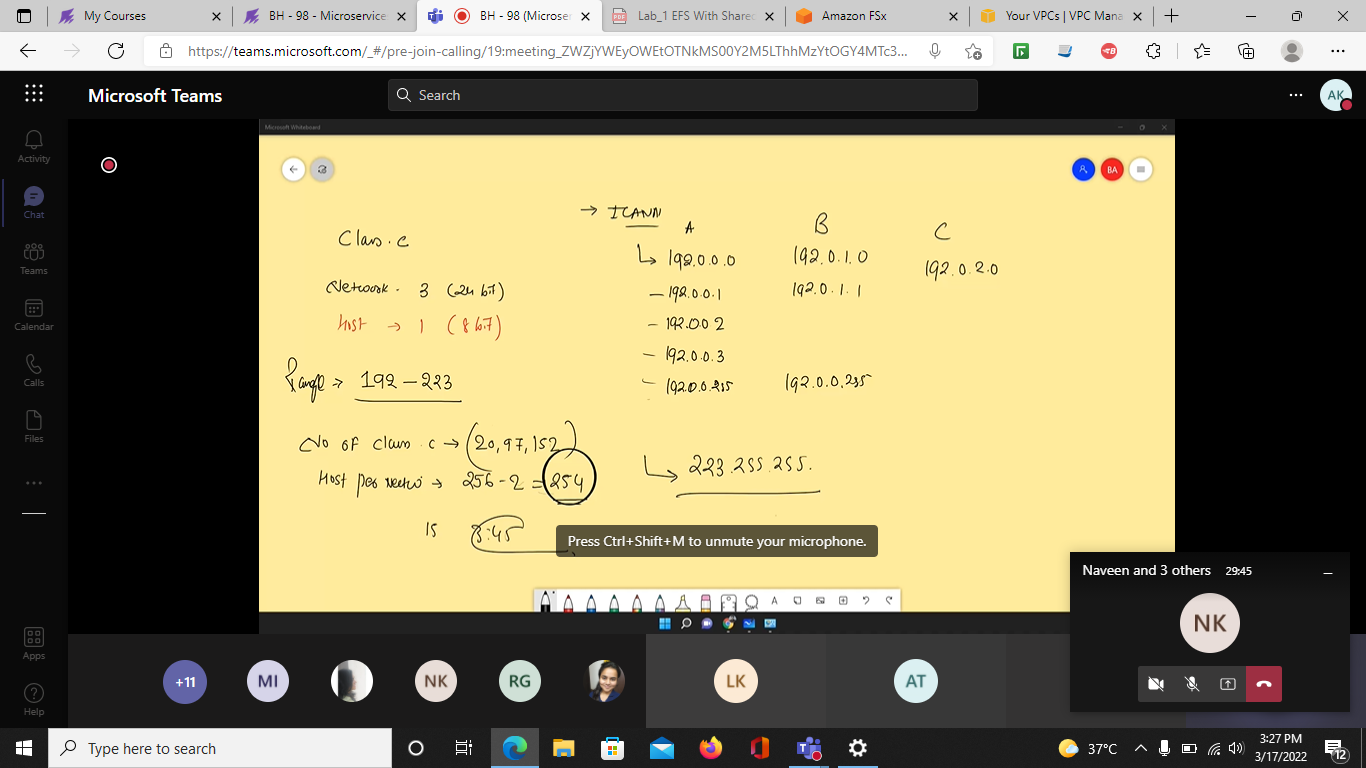 My Courses
BH - 98 - Microservice
BH - 98 (Microser
Lab_1 EFS With Share
Amazon FSx
Your VPCs | VPC Mana
https://teams.microsoft.com/_#/pre-join-calling/19:meeting_ZWZjYWEyOWEtOTNkMS00Y2M5LThhMzYtOGY4MTc3...
Microsoft Teams
Search
AK
Activity
Chat
Teams
Calendar
Calls
Files
Apps
Help
Microsoft Whiteboard
BA
→ ICANN
A B C
Class . C
↳ 192.0.0.0 192.0.1.0 192.0.2.0
Network - 3 (24 bit)
– 192.0.0.1 192.0.1.1
Host → 1 (8 bit)
– 192.0.0 2
– 192.0.0.3
Range → 192 – 223
– 192.0.0.255 192.0.0.255
No of class . c → (20,97,152)
Host per → 256 - 2 = 254
↳ 223.255.255.
15 3:45
Press Ctrl+Shift+M to unmute your microphone.
Naveen and 3 others 29:45
NK
+11
MI
NK
RG
LK
AT
Type here to search
37°C
3:27 PM
3/17/2022
12